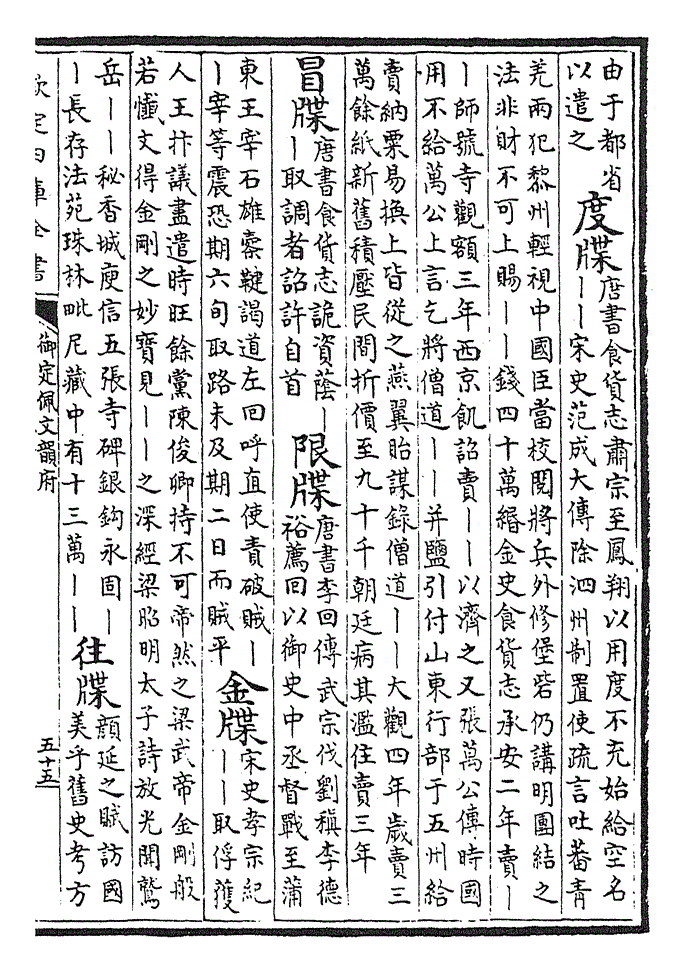 由于都省
以遣之
度牒
唐書食貨志肅宗至鳳翔以用度不充始給空名
丨丨宋史范成大傳除泗州制置使疏言吐蕃青
羌兩犯黎州輕視中國臣當校閱將兵外修堡砦仍講明團結之
法非財不可上賜丨丨錢四十萬緡金史食貨志承安二年賣丨
丨師號寺觀額三年西京飢詔賣丨丨以濟之又張萬公傳時國
用不給萬公上言乞將僧道丨丨并鹽引付山東行部于五州給
賣納粟易換上皆從之燕翼貽謀錄僧道丨丨大觀四年歲賣三
萬餘紙新舊積壓民間折價至九十千朝廷病其濫住賣三年
冒牒
唐書食貨志詭資蔭丨
丨取調者詔許自首
限牒
唐書李回傳武宗伐劉稹李德
裕薦回以御史中丞督戰至蒲
東王宰石雄櫜鞬謁道左回呼直使責破賊丨
丨宰等震恐期六旬取路未及期二日而賊平
金牒
宋史孝宗紀
丨丨取俘獲
人王抃議盡遣時旺餘黨陳俊卿持不可帝然之梁武帝金剛般
若懺文得金剛之妙寶見丨丨之深經梁昭明太子詩放光聞鷲
岳丨丨秘香城庾信五張寺碑銀鉤永固丨
丨長存法苑珠林毗尼藏中有十三萬丨丨
往牒
顏延之賦訪國
美乎舊史考方
欽定四庫全書
御定佩文韻府
五十五